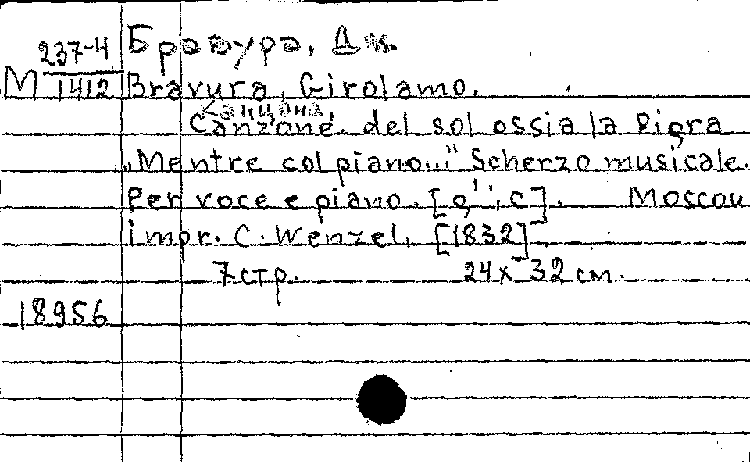 237-4 Бравура, Дж.
M 1412 Bravura, Girolamo.
Канцона.
Canzone. del sol ossia la Pigra
„Mentre col piano..." Scherzo musicale.
Per voce e piano. [g'; c]. Moscou
impr. C. Wenzel, [1832].
7 стр. 24 x 32 см.
18956